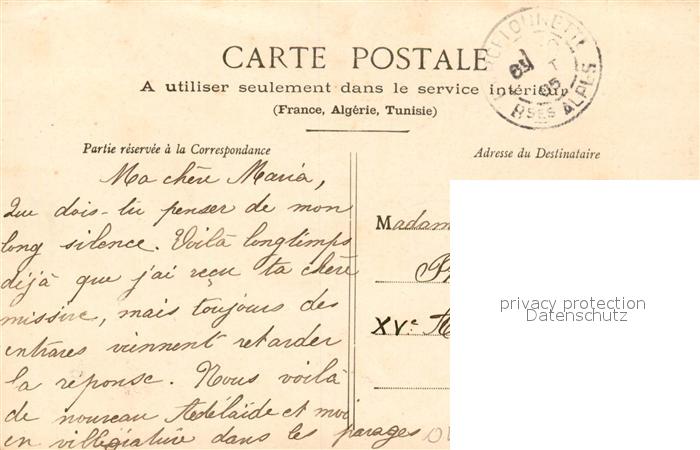 CARTE POSTALE
A utiliser seulement dans le service intérieur
(France, Algérie, Tunisie)
BARCELONNETTE
05
BSES ALPES
Partie réservée à la Correspondance
Ma chère Maria,
Que dois-tu penser de mon
long silence. Voilà longtemps
déjà que j'ai reçu ta chère
missive, mais toujours des
entraves viennent retarder
la réponse. Nous voilà
de nouveau Adélaïde et moi
en villégiature dans les parages
Adresse du Destinataire
Madam
XVe
privacy protection
Datenschutz